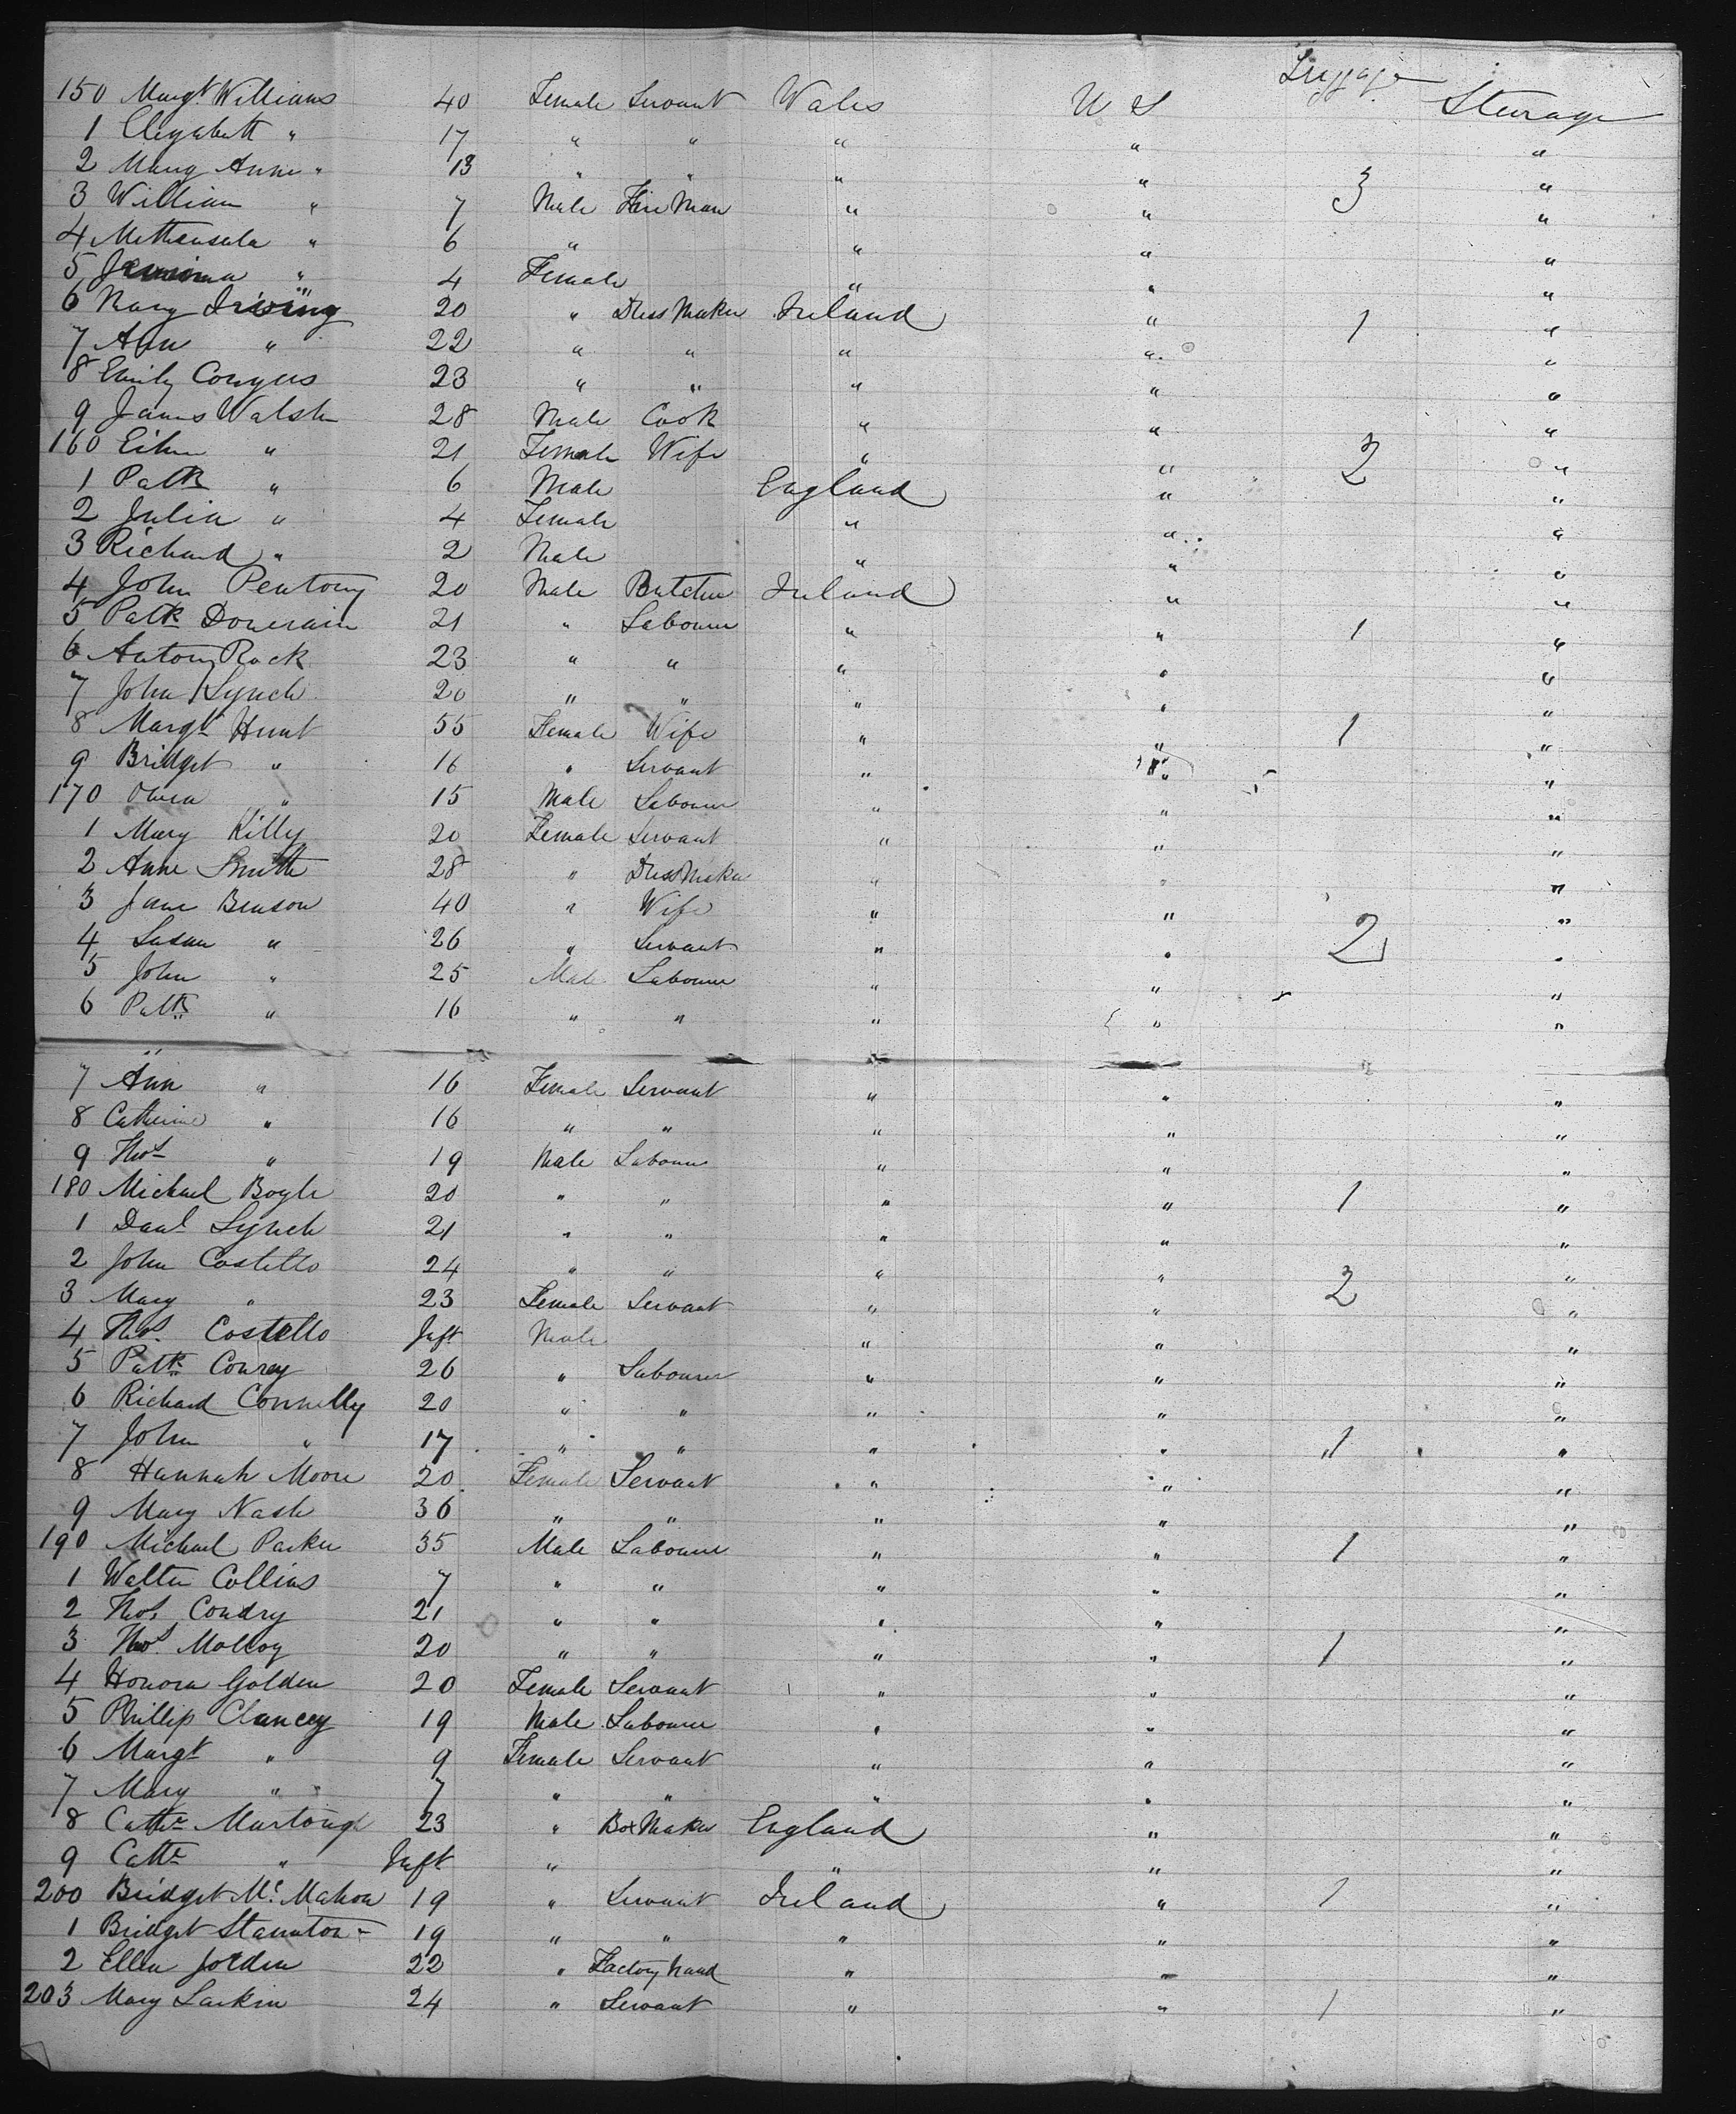 Luggage
150 Margt Williams 40 Female Servant Wales U S Steerage
1 Elizabeth " 17 " " " " "
2 Mary Anne " 13 " " " " 3 "
3 William " 7 Male Fire Man " " "
4 Methausala " 6 " " " "
5 Jemima " 4 Female " " "
6 Mary Irving 20 " Dress Maker Ireland " 1 "
7 Ann " 22 " " " " "
8 Emily Conyers 23 " " " " "
9 James Walsh 28 Male Cook " " "
160 " 21 Female Wife " " 2 "
1 Patk " 6 Male England " "
2 Julia " 4 Female " " "
3 Richard " 2 Male " " "
4 John Pentony 20 Male Butcher Ireland " "
5 Patk 21 " Labourer " " 1 "
6 Antony Rock 23 " " " " "
7 John Lynch 20 " " " " "
8 Margt Hunt 55 Female Wife " " 1 "
9 Bridget " 16 " Servant " " "
170 Owen " 15 Male Labourer " " "
1 Mary Killy 20 Female Servant " " "
2 Anne Smith 28 " Dress Maker " " "
3 Jane Benson 40 " Wife " " 2 "
4 Susan " 26 " Servant " " "
5 John " 25 Male Labourer " " "
6 Patk " 16 " " " " "
7 Ann " 16 Female Servant " " "
8 Catherine " 16 " " " " "
9 Thos " 19 Male Labourer " " "
180 Michael Boyle 20 " " " " 1 "
1 Danl Lynch 21 " " " " "
2 John Costello 24 " " " " 2 "
3 Mary " 23 Female Servant " " "
4 Thos Costello Inft Male " " "
5 Patk Conrey 26 " Labourer " " "
6 Richard Connelly 20 " " " " "
7 John " 17 " " " " 1 "
8 Hannah Moore 20 Female Servant " " "
9 Mary Nash 36 " " " " "
190 Michael Parker 35 Male Labourer " " 1 "
1 Walter Collins 7 " " " " "
2 Thos Condry 21 " " " " "
3 Thos Molloy 20 " " " " 1 "
4 Honora Golden 20 Female Servant " " "
5 Phillip Clancey 19 Male Labourer " " "
6 Margt " 9 Female Servant " " "
7 Mary " 7 " " " " "
8 Cathe Murtough 23 " Box Maker England " "
9 Cathe " Inft " " " "
200 Bridget Mc Mahon 19 " Servant Ireland " 1 "
1 Bridget Staunton 19 " " " " "
2 Ellen Jorden 22 " Factory hand " " "
203 Mary Larkin 24 " Servant " " 1 "